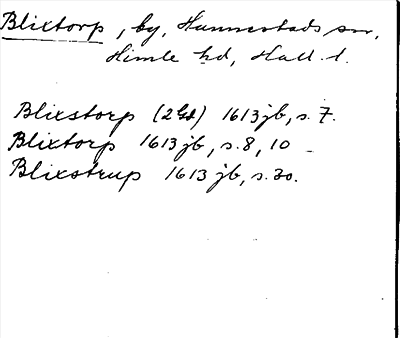 Blixtorp, by, Hunnestads sn,
Himle hd, Hall. l.
Blixstorp (2 st) 1613 jb, s. 7.
Blixtorp 1613 jb, s. 8, 10
Blixstrup 1613 jb, s. 30.